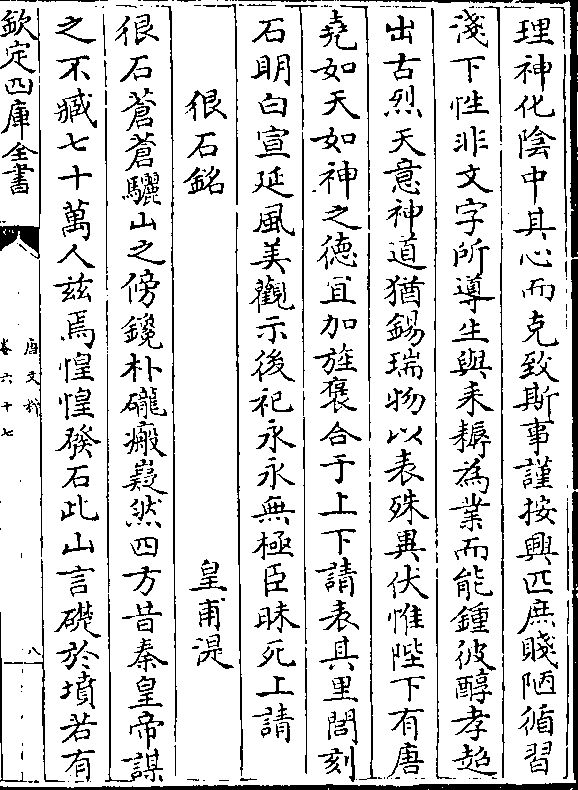 理神化陰中其心而克致斯事謹按興匹庶賤陋循習
淺下性非文字所導生與耒耨為業而能鍾彼醇孝超
出古烈天意神道猶錫瑞物以表殊異伏惟陛下有唐
堯如天如神之徳宜加旌褒合于上下請表其里閭刻
石明白宣延風美觀示後祀永永無極臣昧死上請
很石銘
皇甫湜
很石蒼蒼驪山之傍鑱朴礲瘢嶷然四方昔秦皇帝謀
之不臧七十萬人兹焉惶惶發石此山言礎於墳若有
欽定四庫全書
唐文粹
卷六十七
八